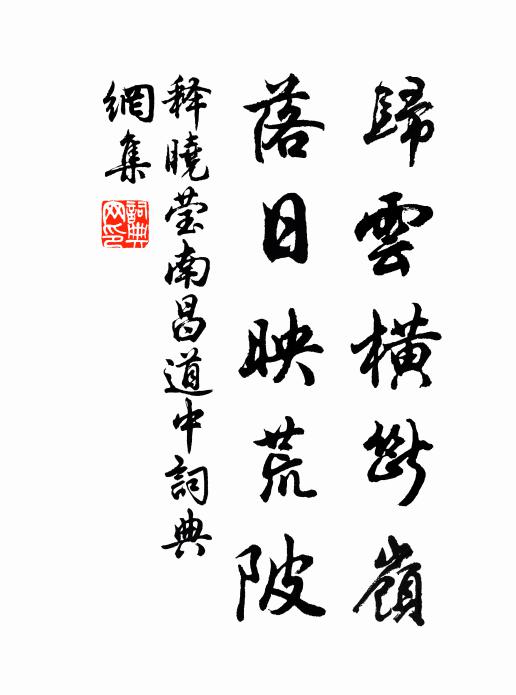 歸雲橫斷嶺
落日映荒陂
释曉莹南昌道中詞典
網集
詞典
网印